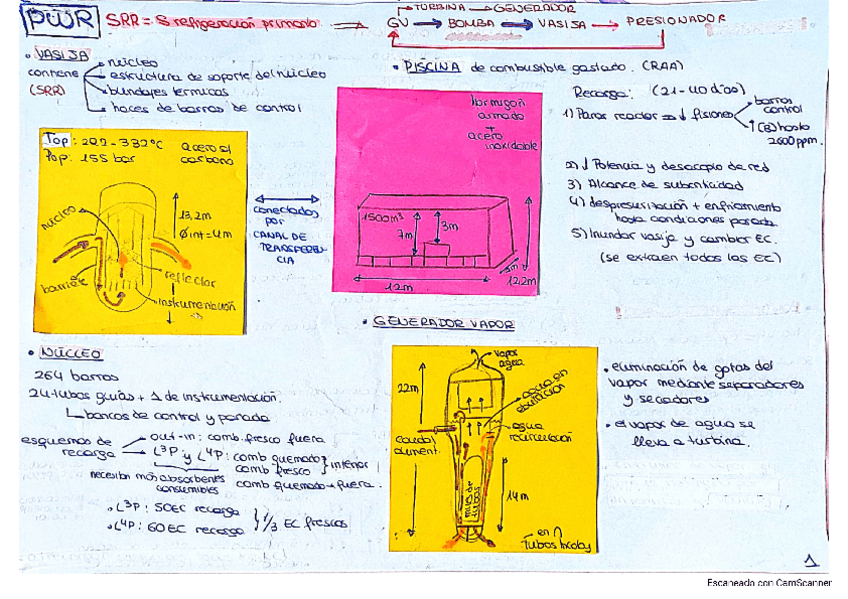 PWR SRR = S refrigeración primario ⟹ GV → BOMBA → VASIJA → PRESIONADOR
→ TURBINA → GENERADOR
• VASIJA
contiene
(SRR)
núcleo
estructura de soporte del núcleo
blindajes térmicos
haces de barras de control
Top: 292 - 332ºC
Pop: 155 bar
acero al
carbono
núcleo
13,2m
Ø int = 4m
barrilete
reflector
instrumentación
conectados
por
CANAL DE
TRANSFEREN
CIA
• PISCINA de combustible gastado. (RAA)
hormigón
armado
+
acero
inoxidable
1500m³
7m
3m
12m
12,2m
Recarga: (21-40 días)
1) Paros reactor → ↓ fisiones
barras
control
↑ [B] hasta
2600 ppm.
2) ↓ Potencia y desacoplo de red
3) Alcance de subcriticidad
4) despresurización + enfriamiento
hasta condiciones parada.
5) Inundar vasija y cambiar EC.
(se extraen todos los EC)
• NÚCLEO
264 barras
24 tubos guías + 1 de instrumentación.
bancos de control y parada
esquemas de
recarga
out-in: comb. fresco fuera
L³P y L⁴P: comb quemado
comb fresco } interior
comb quemado → fuera.
necesitan más absorbentes
consumibles
• L³P: 50EC recarga
• L⁴P: 60EC recarga } 1/3 EC frescos
• GENERADOR VAPOR
vapor
agua
22m
agua en
ebullición
agua
recirculación
caudal
aliment.
miles de
tubos
14m
en ∩
Tubos Incoloy
• eliminación de gotas del
vapor mediante separadores
y secadores
• el vapor de agua se
lleva a turbina.
1
Escaneado con CamScanner